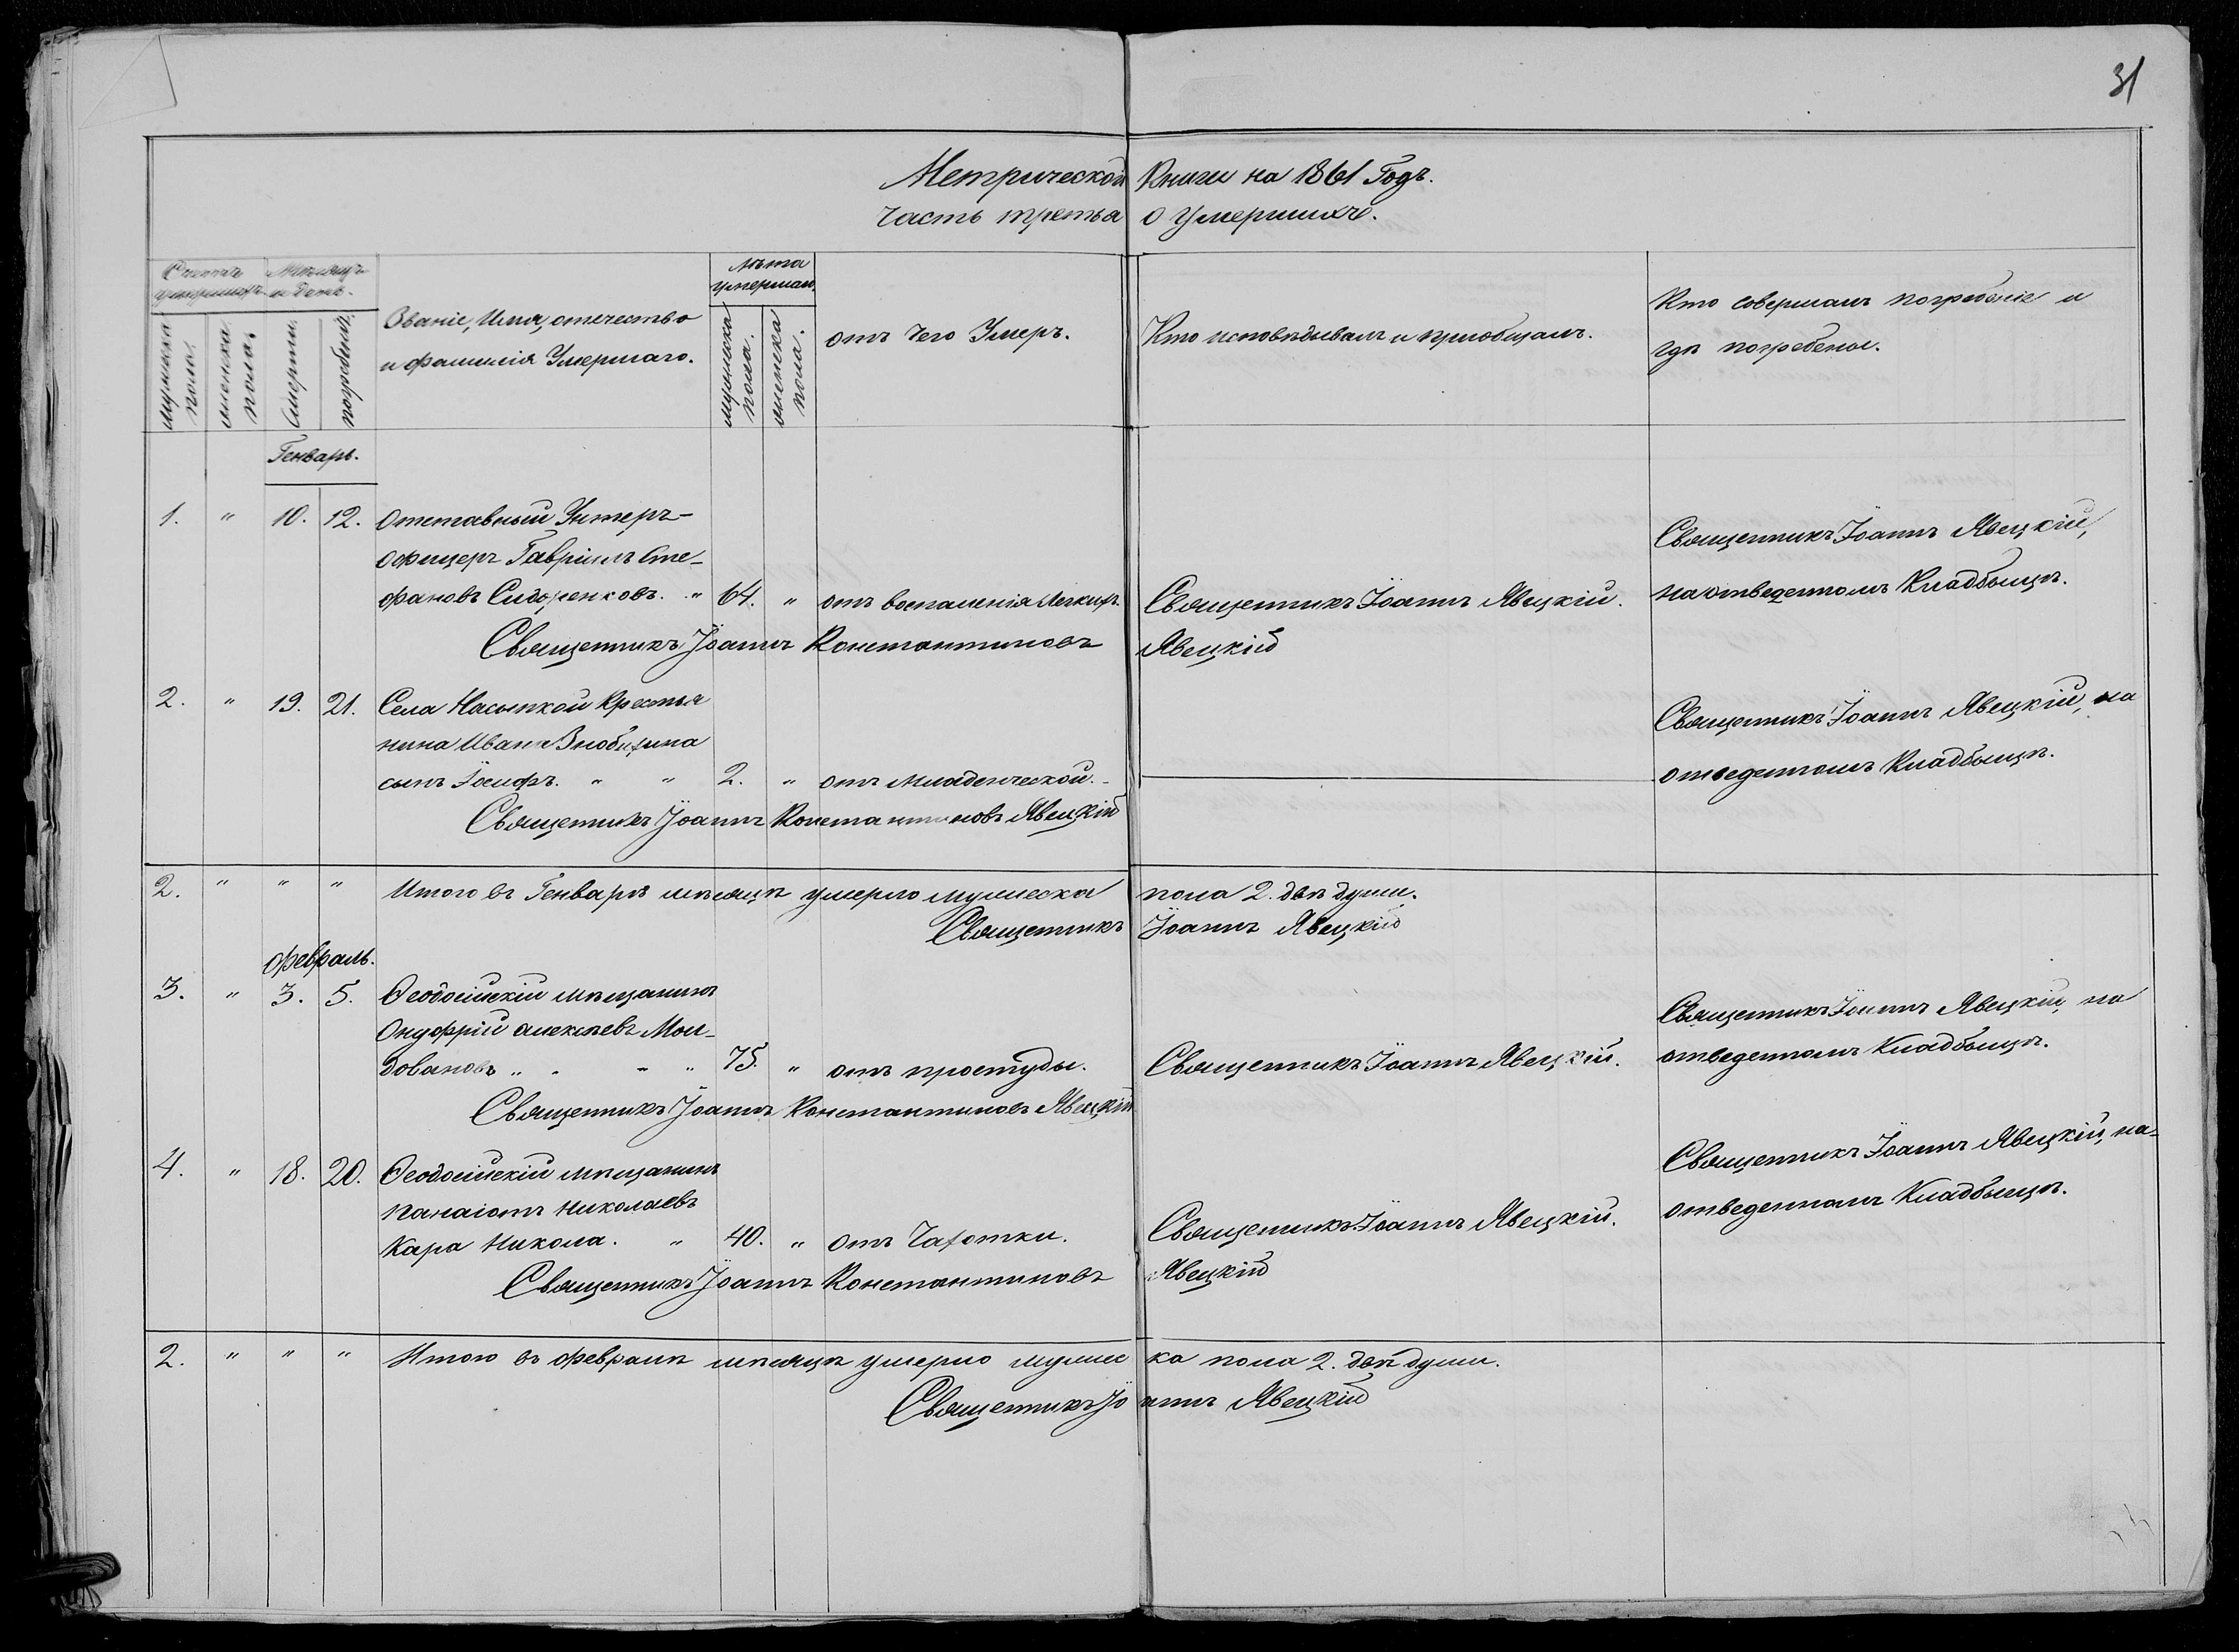 31
Метрической Книги на 1861 Годъ.
часть третья о Умершихъ.
Счетъ умершихъ
Мѣсяцъ и день.
Званіе, Имя, отечество
и фамилія Умершаго.
Лѣта умершаго.
отъ чего Умеръ.
Кто исповѣдывалъ и приобщалъ.
Кто совершалъ погребеніе и
гдѣ погребены.
мужеска пола.
женска пола.
Смерти.
погребенія.
мужеска пола.
женска пола.
Генварь.
1. " 10. 12. Отставный Унтеръ-
офицеръ Гавріилъ Сте-
фановъ Сидоренковъ. " 64. " отъ воспаленія легкихъ. Священникъ Іоаннъ Явецкій.
Священникъ Іоаннъ Явецкій,
на отведенномъ Кладбыщѣ.
Священникъ Іоаннъ Константиновъ Явецкій
2. " 19. 21. Села Насыпкой Крестья
нина Ивана
сынъ Іосифъ. " " 2. " отъ младенческой.
Священникъ Іоаннъ Явецкій, на
отведенномъ Кладбыщѣ.
Священникъ Іоаннъ Константиновъ Явецкій
2. " " " Итого въ Генварѣ мѣсяцѣ умерло мужеска пола 2. двѣ души.
Священникъ Іоаннъ Явецкій
февраль.
3. " 3. 5. Ѳеодосійскій мѣщанинъ
Онуфрій алексѣевъ Мол-
довановъ " " " " 75. " отъ простуды. Священникъ Іоаннъ Явецкій.
Священникъ Іоаннъ Явецкій, на
отведенномъ Кладбыщѣ.
Священникъ Іоаннъ Константиновъ Явецкій
4. " 18. 20. Ѳеодосійскій мѣщанинъ
панаіотъ николаевъ
Кара Никола. " 40. " отъ Чахотки. Священникъ Іоаннъ Явецкій.
Священникъ Іоаннъ Явецкій, на-
отведенномъ Кладбыщѣ.
Священникъ Іоаннъ Константиновъ Явецкій
2. " " " Итого въ февралѣ мѣсяцѣ умерло мужес ка пола 2. двѣ души.
Священникъ Іо аннъ Явецкій